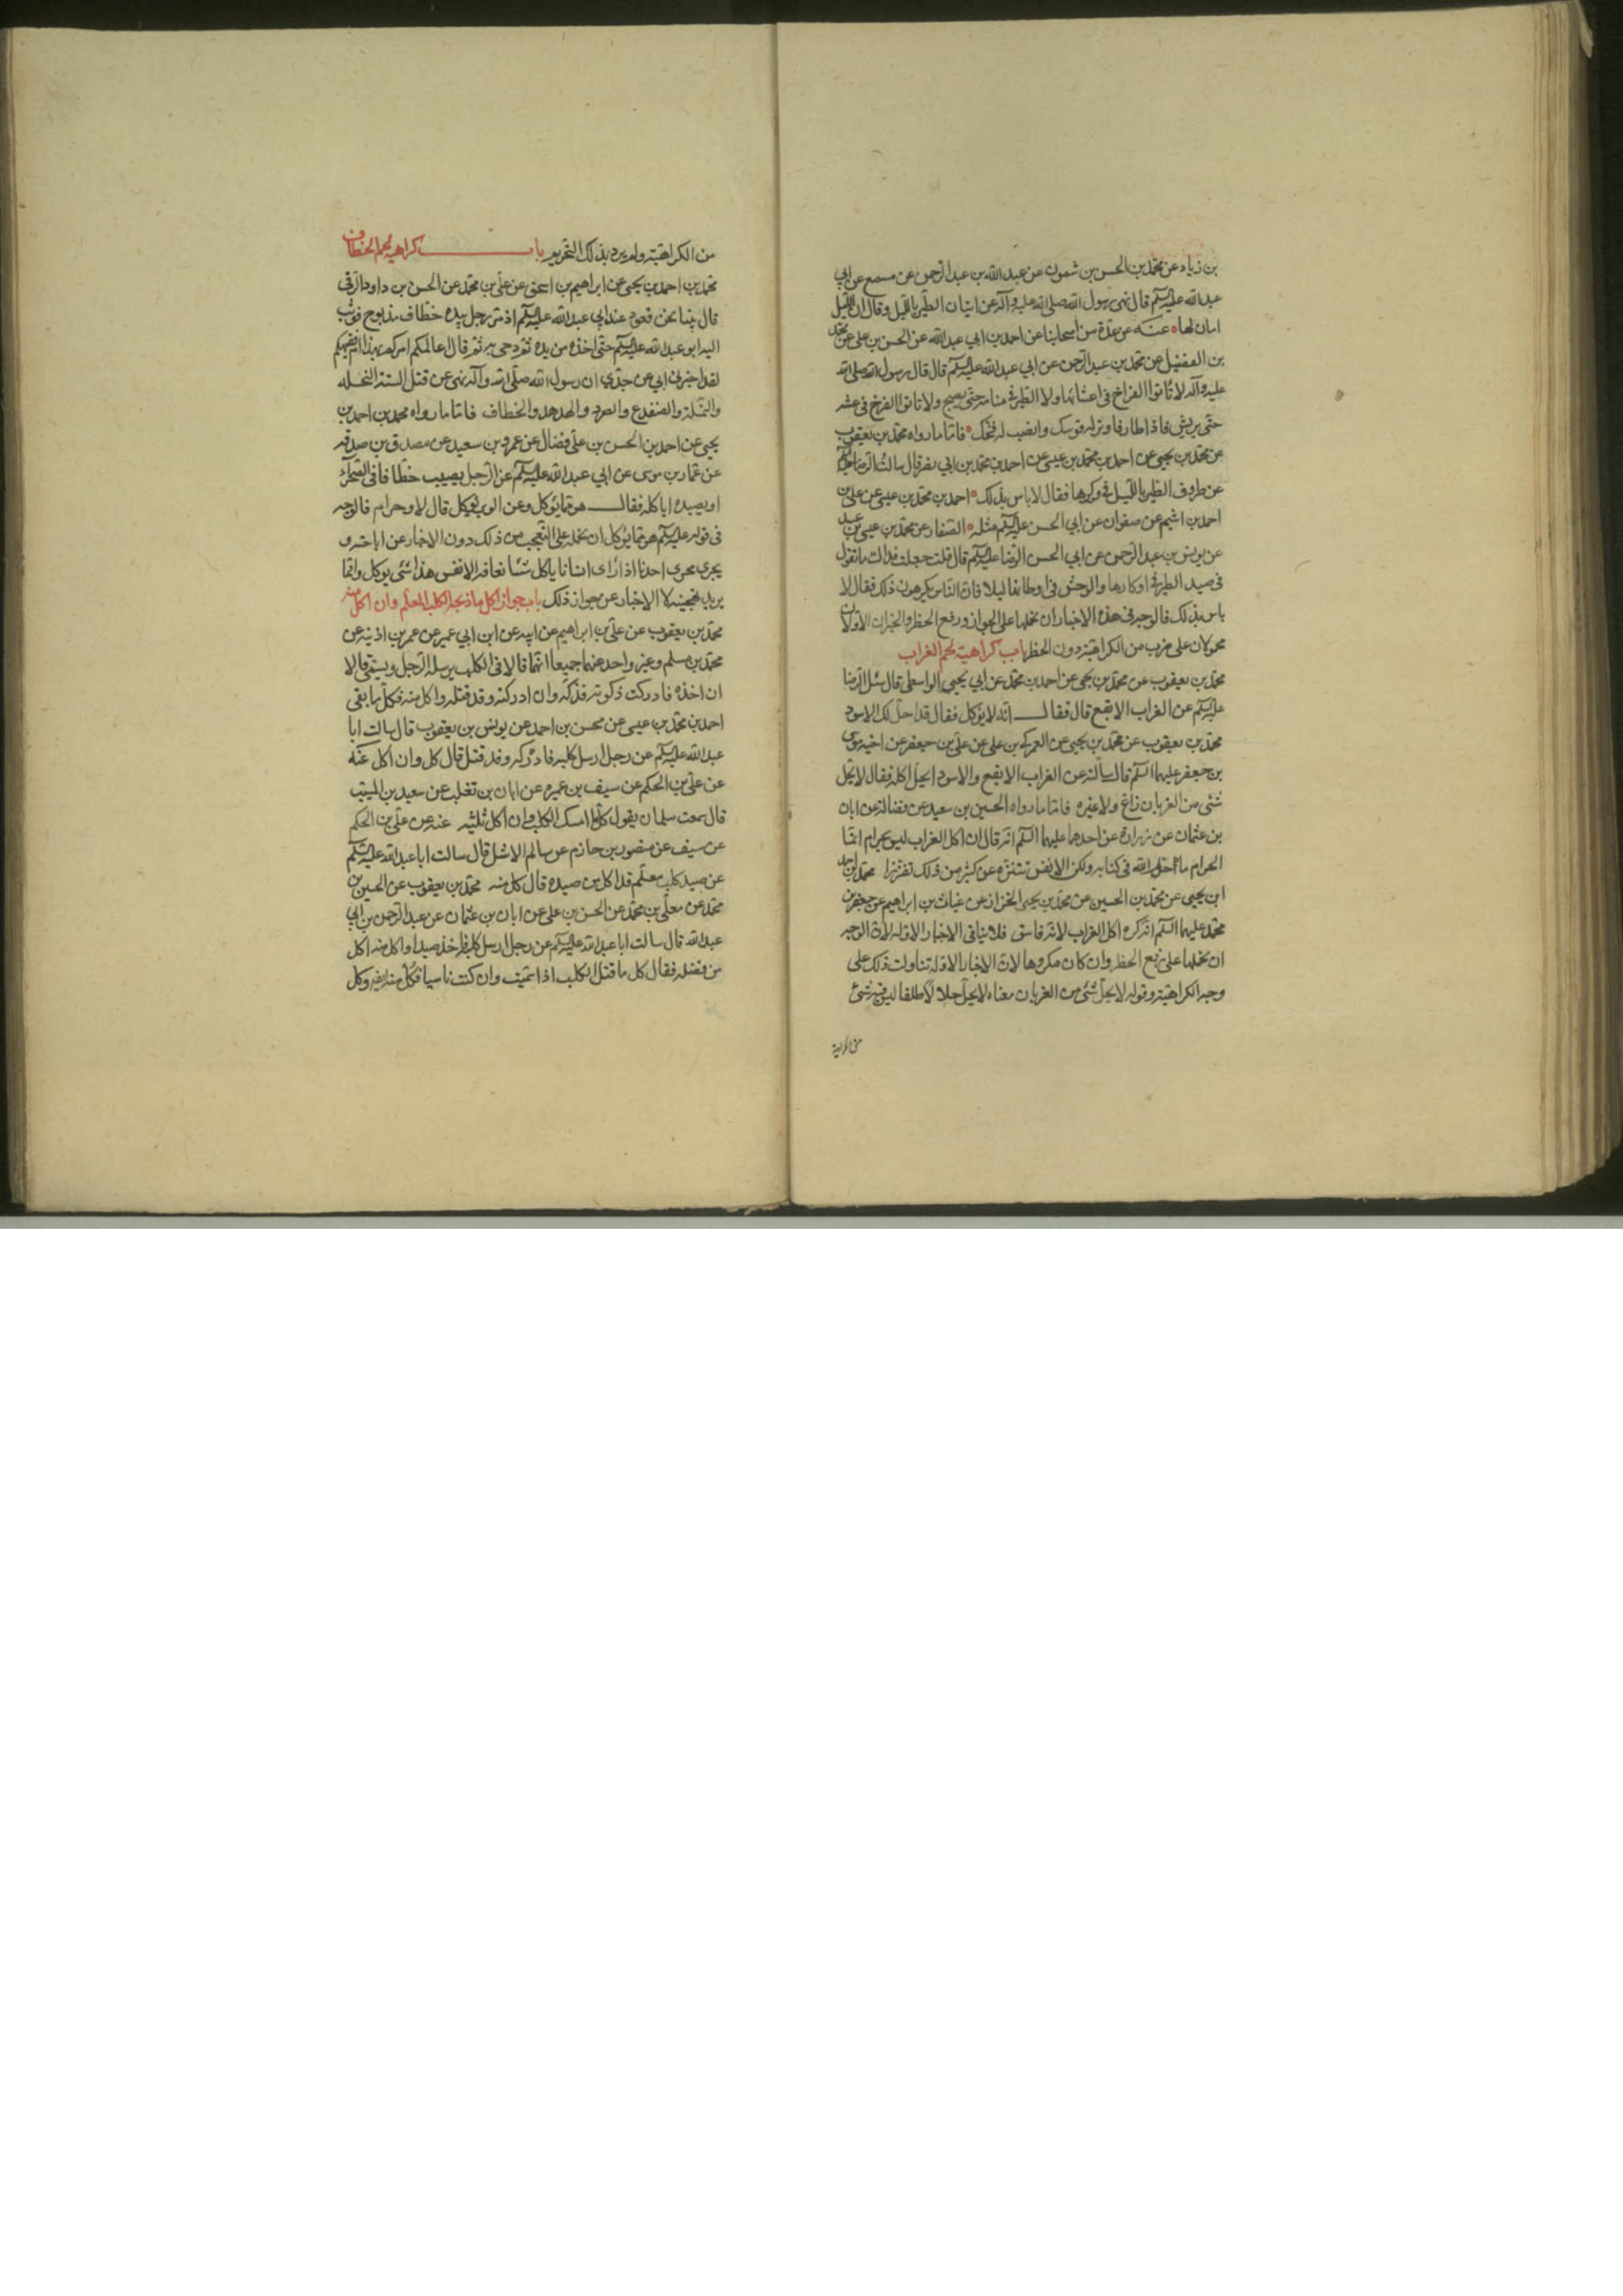 بن زياد عن محمد بن الحسن بن شمون عن عبد الله بن عبد الرحمن عن مسمع عن ابي
عبد الله عليه السلم قال نهى رسول الله صلى الله عليه وآله عن اتيان الطير بالليل وقال ان الليل
امان لها عنه عن عدة من اصحابنا عن احمد بن ابي عبد الله عن الحسن بن علي عن محمد
بن الفضيل عن محمد بن عبد الرحمن عن ابي عبد الله عليه السلم قال قال رسول الله صلى الله
عليه وآله لا تاتوا الفراخ في اعشاشها ولا الطير في منامه حتى يصبح ولا تاتوا الفرخ في عشه
حتى يريش فاذا طار فاوتر له قوسك وانصب له فخك فاما ما رواه محمد بن يعقوب
عن محمد بن يحيى عن احمد بن محمد بن عيسى عن احمد بن محمد بن ابي نصر قال سالت الرضا عليه السلم
عن طروق الطير بالليل في وكرها فقال لا باس بذلك احمد بن محمد بن عيسى عن علي بن
احمد بن اشيم عن صفوان عن ابي الحسن عليه السلم مثله الصفار عن محمد بن عيسى بن عبيد
عن يونس بن عبد الرحمن عن ابي الحسن الرضا عليه السلم قال قلت جعلت فداك ما تقول
في صيد الطير في اوكارها والوحش في اوطانها ليلا فان الناس يكرهون ذلك فقال لا
باس بذلك فالوجه في هذه الاخبار ان نحملها على الجواز ورفع الحظر والخبران الاولان
محمولان على ضرب من الكراهية دون الحظر باب كراهية لحم الغراب
محمد بن يعقوب عن محمد بن يحيى عن احمد بن محمد عن ابي يحيى الواسطي قال سئل الرضا
عليه السلم عن الغراب الابقع قال فقال انه لا يوكل فقال قد احل لك الاسود
محمد بن يعقوب عن محمد بن يحيى عن العمركي بن علي عن علي بن جعفر عن اخيه موسى
بن جعفر عليهما السلم قال سالته عن الغراب الابقع والاسود ايحل اكله فقال لا يحل
شئ من الغربان زاغ ولا غيره فاما ما رواه الحسين بن سعيد عن فضالة عن ابان
بن عثمان عن زرارة عن احدهما عليهما السلم انه قال ان اكل الغراب ليس بحرام انما
الحرام ما حرم الله في كتابه ولكن الانفس تتنزه عن كثير من ذلك تقززا محمد بن احمد
ابن يحيى عن محمد بن الحسين عن محمد بن يحيى الخزاز عن غياث بن ابراهيم عن جعفر بن
محمد عليهما السلم انه كره اكل الغراب لانه فاسق فلا ينافي الاخبار الاوله لان الوجه
ان نحملها على رفع الحظر وان كان مكروها لان الاخبار الاوله تناولت ذلك على
وجه الكراهية وقوله لا يحل شئ من الغربان معناه لا يحل حلالا طلقا ليس فيه شئ
من الكراهية
من الكراهية ولم يرد بذلك التحريم باب كراهية لحم الخطاف
محمد بن احمد بن يحيى عن ابراهيم بن اسحق عن علي بن محمد عن الحسن بن داود الرقي
قال بينا نحن قعود عند ابي عبد الله عليه السلم اذ مر رجل بيده خطاف مذبوح فوثب
اليه ابو عبد الله عليه السلم حتى اخذه من يده ثم دحى به ثم قال اعالمكم امركم بهذا ام فقيهكم
لقد اخبرني ابي عن جدي ان رسول الله صلى الله وآله نهى عن قتل الستة النحله
والنملة والضفدع والصرد والهدهد والخطاف فاما ما رواه محمد بن احمد بن
يحيى عن احمد بن الحسن بن علي فضال عن عمرو بن سعيد عن مصدق بن صدقه
عن عمار بن موسى عن ابي عبد الله عليه السلم عن الرجل يصيب خطافا في الصحراء
او يصيده اياكله فقال هو مما يوكل وعن الوبر يوكل قال لا هو حرام فالوجه
في قوله عليه السلم هو مما يوكل ان نحمله على التعجب من ذلك دون الاخبار عن اباحته و
يجري مجرى احدنا اذا راى انسانا ياكل شئا تعافه الانفس هذا شئ يوكل وانما
يريد تهجينه لا الاخبار عن جواز ذلك باب جواز اكل ما ذبحه الكلب المعلم وان اكل منه
محمد بن يعقوب عن علي بن ابراهيم عن ابيه عن ابن ابي عمير عن عمر بن اذينه عن
محمد بن مسلم وغير واحد عنهما جميعا انهما قالا في الكلب يرسله الرجل ويسمي قالا
ان اخذه فادركت ذكوته فذكه وان ادركته وقد قتله واكل منه فكل ما بقى
احمد بن محمد بن عيسى عن محسن بن احمد عن يونس بن يعقوب قال سالت ابا
عبد الله عليه السلم عن رجل ارسل كلبه فادركه وقد قتل قال كل وان اكل عنه
عن علي بن الحكم عن سيف بن عميره عن ابان بن تغلب عن سعيد بن المسيب
قال سمعت سلمان يقول كل مما امسك الكلب وان اكل ثلثيه عنه عن علي بن الحكم
عن سيف عن منصور بن حازم عن سالم الاشل قال سالت ابا عبد الله عليه السلم
عن صيد كلب معلم قد اكل من صيده قال كل منه محمد بن يعقوب عن الحسين بن
محمد عن معلى بن محمد عن الحسن بن علي عن ابان بن عثمان عن عبد الرحمن بن ابي
عبد الله قال سالت ابا عبد الله عليه السلم عن رجل ارسل كلبه فاخذ صيدا واكل منه اكل
من فضله فقال كل ما قتل الكلب اذا سميت وان كنت ناسيا فكل منه ايضا وكل